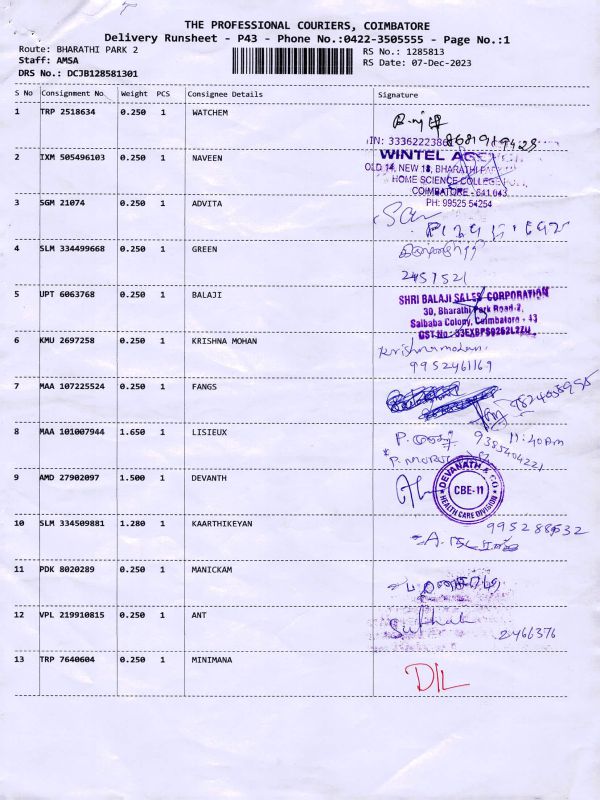 THE PROFESSIONAL COURIERS, COIMBATORE
Delivery Runsheet - P43 - Phone No.:0422-3505555 - Page No.:1
Route: BHARATHI PARK 2
RS No.: 1285813
Staff: AMSA
RS Date: 07-Dec-2023
DRS No.: DCJB128581301
S No Consignment No. Weight PCS Consignee Details Signature
1 TRP 2518634 0.250 1 WATCHEM
8681919428
IN: 3336222386
2 IXM 505496103 0.250 1 NAVEEN
WINTEL
OLD 14, NEW 18, BHARATHI
HOME SCIENCE COLLEGE
COIMBATORE - 641 043
PH: 99525 54254
3 SGM 21074 0.250 1 ADVITA
4 SLM 334499668 0.250 1 GREEN
2451521
5 UPT 6063768 0.250 1 BALAJI
SHRI BALAJI SALES CORPORATION
30, Bharathi Park Road-2,
Saibaba Colony, Coimbatore - 43
GST No.
6 KMU 2697258 0.250 1 KRISHNA MOHAN
Krishnamohan
9952461169
7 MAA 107225524 0.250 1 FANGS
8 MAA 101007944 1.650 1 LISIEUX
11:40Am
9385404221
9 AMD 27902097 1.500 1 DEVANTH
DEVANATH & CO
CBE-11
HEALTH CARE DIVISION
10 SLM 334509881 1.280 1 KAARTHIKEYAN
11 PDK 8020289 0.250 1 MANICKAM
12 VPL 219910815 0.250 1 ANT
2466376
13 TRP 7640604 0.250 1 MINIMANA
DIL